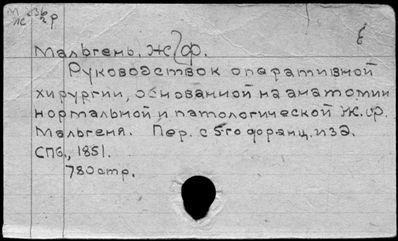 Мальгень, Ж. Ф.
Руководство к оперативной
хирургии, основанной на анатомии
нормальной и патологической Ж. Ф.
Мальгеня. Пер. с 5го франц. изд.
СПб., 1851.
780 стр.